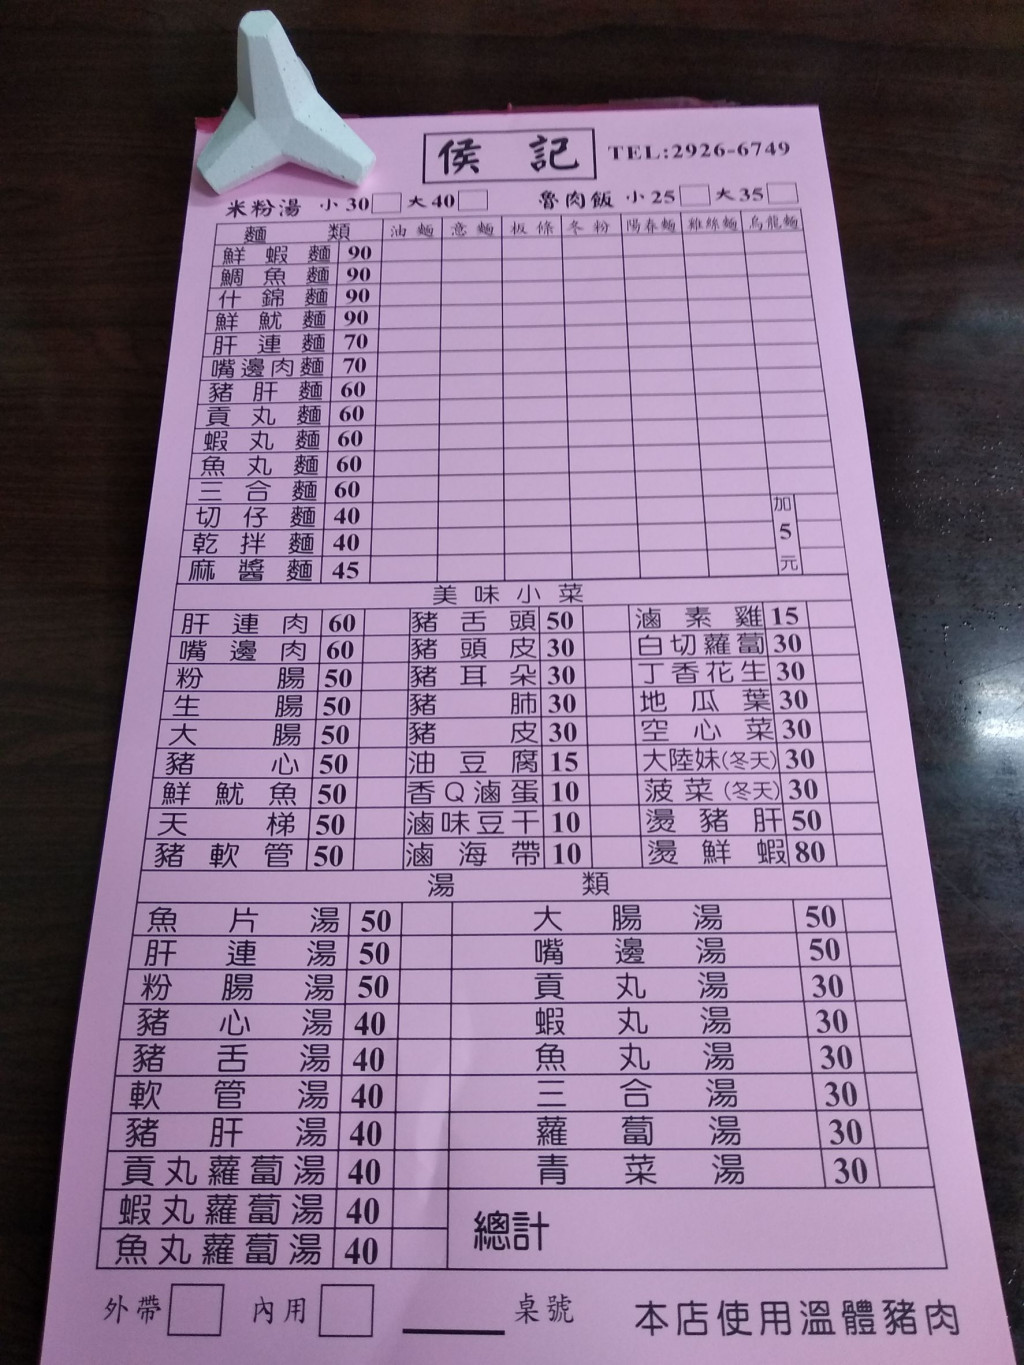 侯記 TEL:2926-6749
米粉湯 小30 大40 魯肉飯 小25 大35
麵類 油麵 意麵 板條 冬粉 陽春麵 雞絲麵 烏龍麵
鮮蝦麵 90
鯛魚麵 90
什錦麵 90
鮮魷麵 90
肝連麵 70
嘴邊肉麵 70
豬肝麵 60
貢丸麵 60
蝦丸麵 60
魚丸麵 60
三合麵 60
切仔麵 40
乾拌麵 40
麻醬麵 45
加5元
美味小菜
肝連肉 60 豬舌頭 50 滷素雞 15
嘴邊肉 60 豬頭皮 30 白切蘿蔔 30
粉腸 50 豬耳朵 30 丁香花生 30
生腸 50 豬肺 30 地瓜葉 30
大腸 50 豬皮 30 空心菜 30
豬心 50 油豆腐 15 大陸妹(冬天) 30
鮮魷魚 50 香Q滷蛋 10 菠菜(冬天) 30
天梯 50 滷味豆干 10 燙豬肝 50
豬軟管 50 滷海帶 10 燙鮮蝦 80
湯類
魚片湯 50 大腸湯 50
肝連湯 50 嘴邊湯 50
粉腸湯 50 貢丸湯 30
豬心湯 40 蝦丸湯 30
豬舌湯 40 魚丸湯 30
軟管湯 40 三合湯 30
豬肝湯 40 蘿蔔湯 30
貢丸蘿蔔湯 40 青菜湯 30
蝦丸蘿蔔湯 40
魚丸蘿蔔湯 40
總計
外帶 內用 桌號 本店使用溫體豬肉